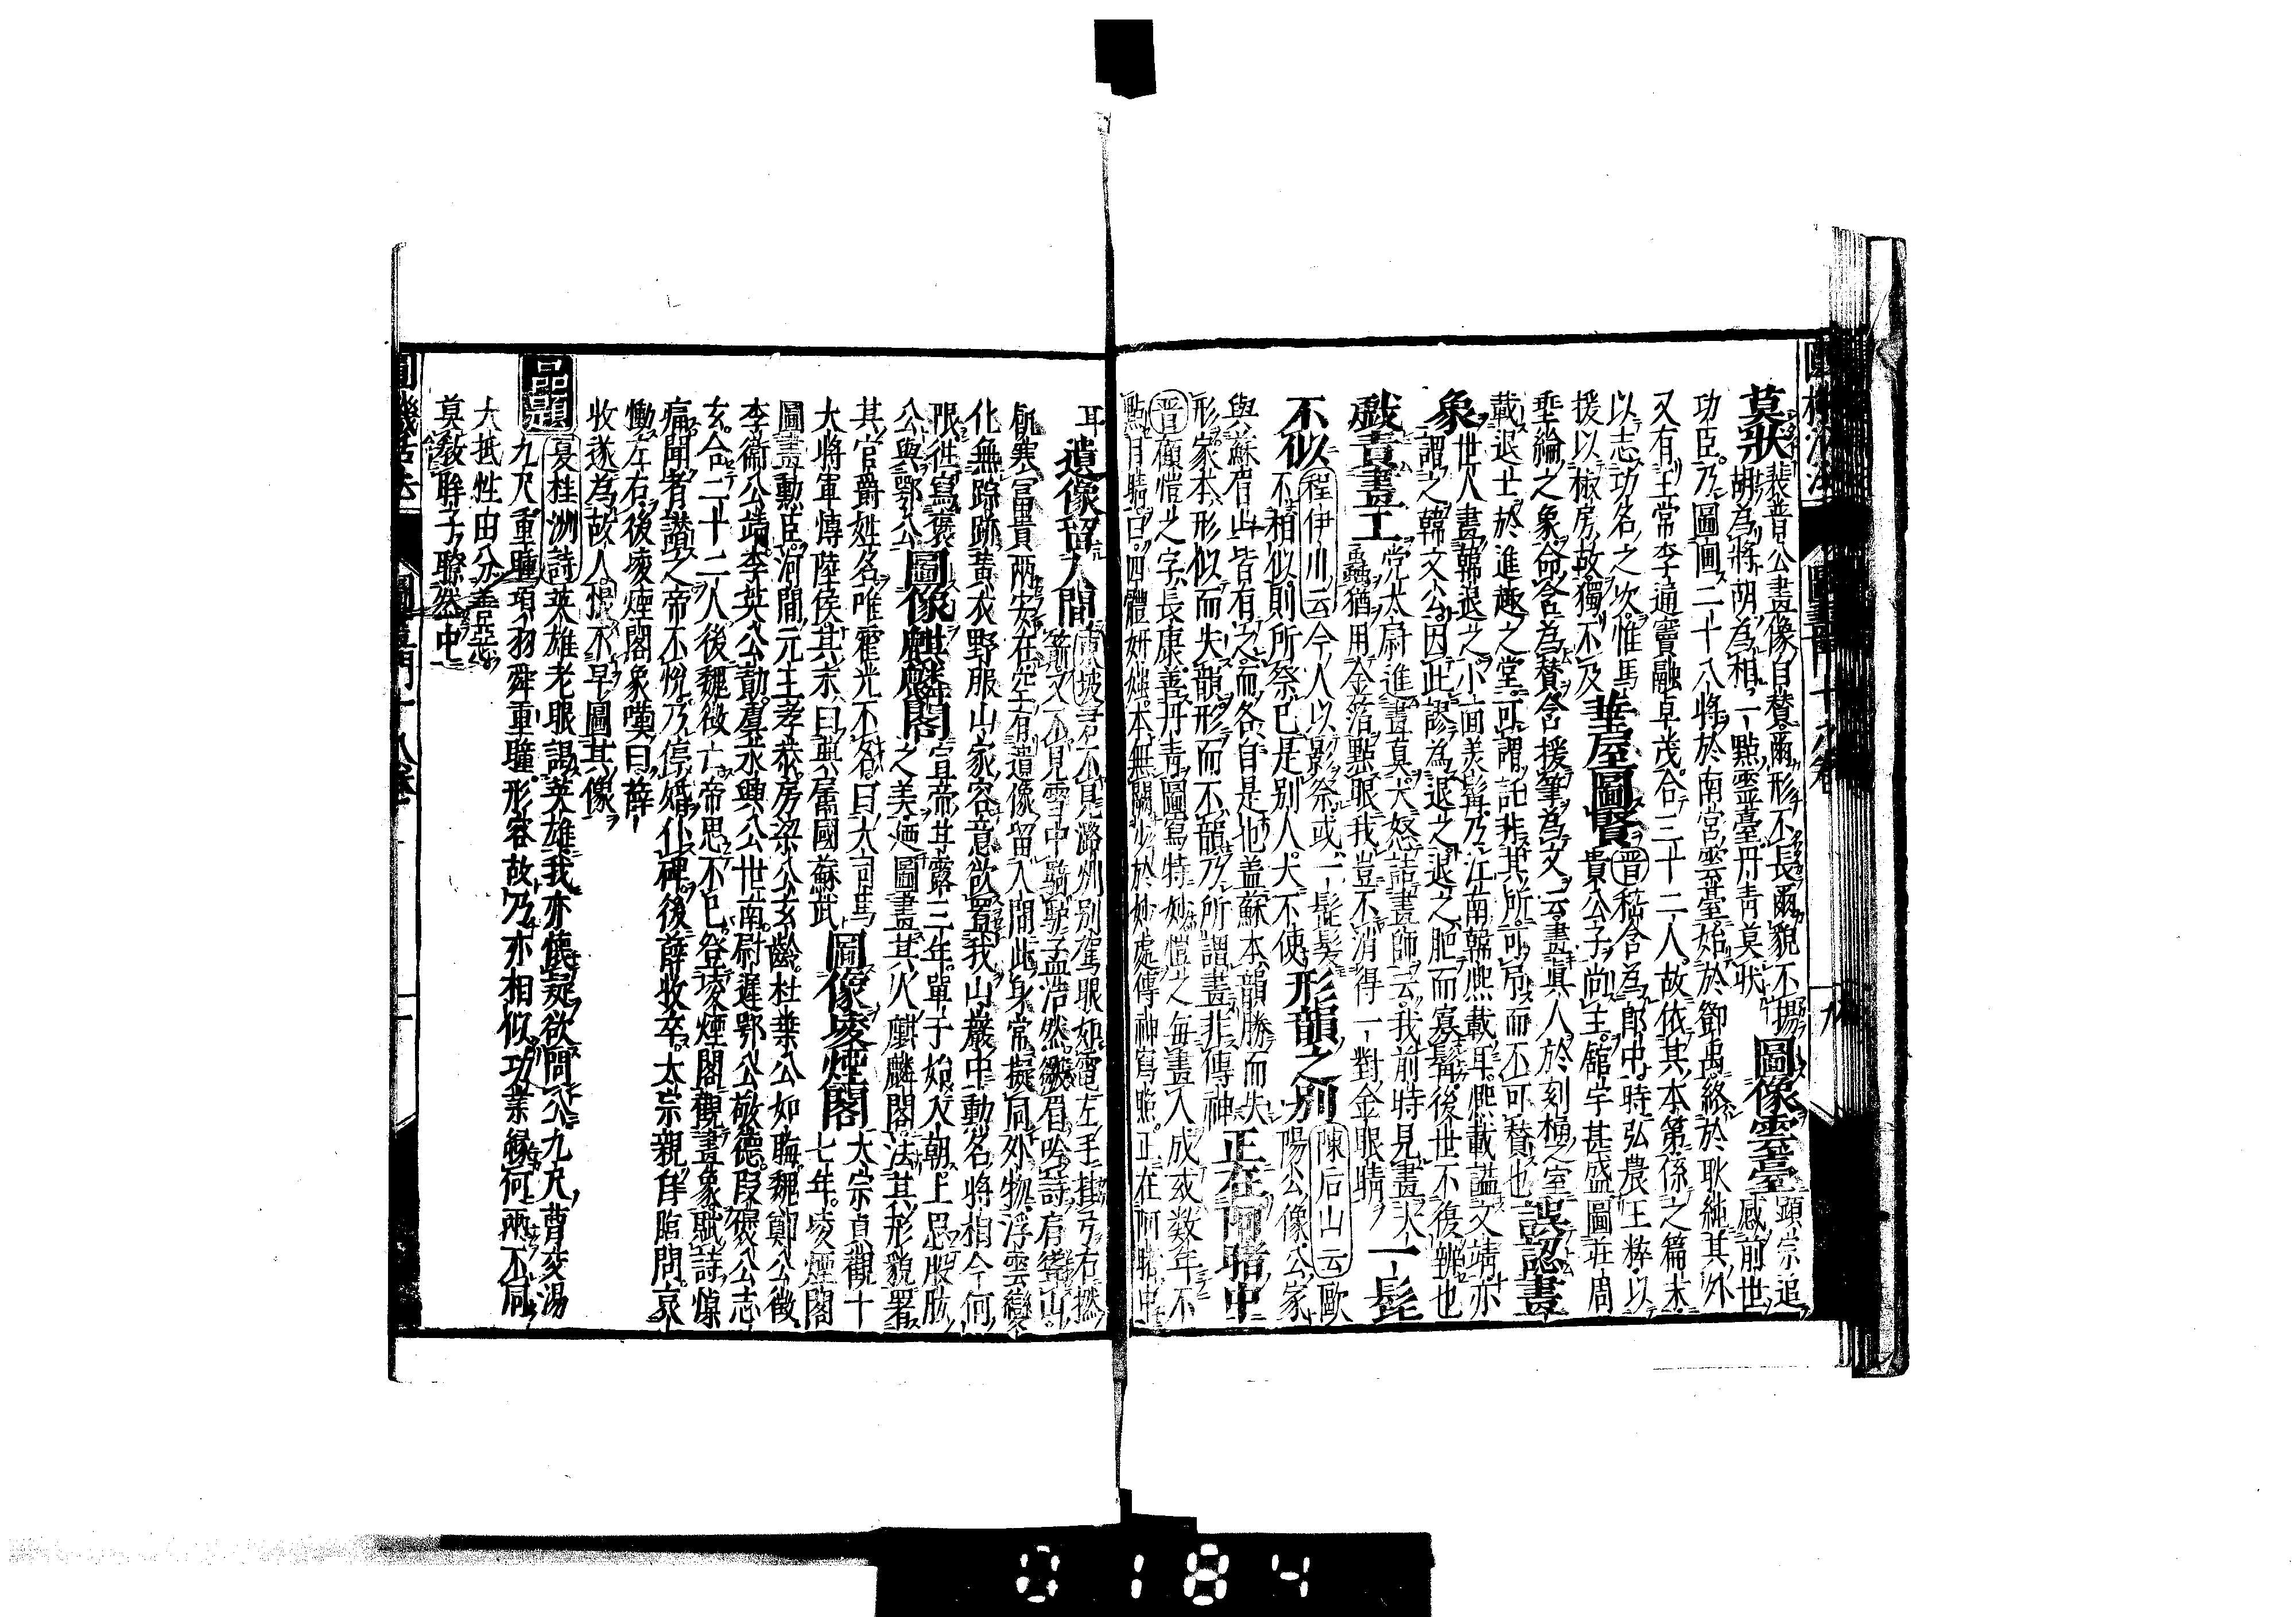 莫狀裴晉公畫像自賛爾形不長爾貌不揚
胡為將胡為相一點靈臺丹青莫狀
圖像雲臺顯宗追感前世
功臣乃圖畫二十八將於南宮雲臺始於鄧禹終於耿純其外
又有王常李通竇融卓茂合三十二人故依其本第係之篇末
以志功名之次惟馬援以椒房故獨不及
堊屋圖賢晉嵇含為郎中時弘農王粹以貴公子尚主館宇甚盛圖莊周
埀綸之象命含為賛含援筆為文云畫眞人於刻桷之室
載退士於進趣之堂可謂託非其所可吊而不可賛也
誤認畫象世人畫韓退之小面美髯乃江南韓熙載耳熙載謚文靖亦
謂之韓文公因此謬為退之退之肥而寡髯後世不復辨也
戯責畫工党太尉進畫真大怒詰畫師云我前時見畫大
蟲猶用金箔點眼我豈不消得一對金眼睛
一髭不似程伊川云今人以影祭或一髭髮
不相似則所祭已是别人大不使
形韻之别陳后山云歐陽公像公家
與蘇眉山皆有之而各自是也盖蘇本韻勝而失
形家本形似而失韻形而不韻乃所謂畫非傳神
正在阿睹中
晋顧愷之字長康善丹青圖寫特妙愷之每畫人成或数年不
點目睛曰四體妍媸本無關少於妙處傳神寫照正在阿睹中
耳
遺像留人間東坡君不見潞州别駕眼如電左手挂弓右撚
箭又不見雪中騎驢孟浩然皺眉吟詩肩聳山
飢寒富貴兩安在空有遺像留人間此身常擬同外物浮雲變
化無踪跡黄衣野服山家容意欲置我山巖中勳名將相今何
限徃寫褒公與鄂公
圖像麒麟閣宣帝甘露三年單于始入朝上思股肱
之美廼圖畫其人麒麟閣法其形貌署
其官爵姓名唯霍光不名曰大司馬
大將軍傳陸侯其末曰典屬國蘇武
圖像凌煙閣太宗貞觀十七年凌煙閣
圖畫勳臣河間元王孝恭房梁公玄齡杜葉公如晦魏鄭公徵
李衞公靖李英公勣虞永興公世南尉遲鄂公敬德叚褒公志
玄合二十二人後魏徴亡帝思不已登凌煙閣觀畫象賦詩悼
痛聞者讃之帝不悅乃停婚仆碑後薛收卒太宗親自臨問哀
慟左右後凌煙閣象嘆曰薛
收遂為故人恨不早圖其像
品題
夏桂洲詩英雄老眼識英雄我亦懐疑欲問公九尺曹交湯
九尺重瞳項羽舜重瞳形容故乃亦相似功業縁何兩不同
大抵性由分善惡
莫教眸子瞭然中
圖畫門十八卷
0184